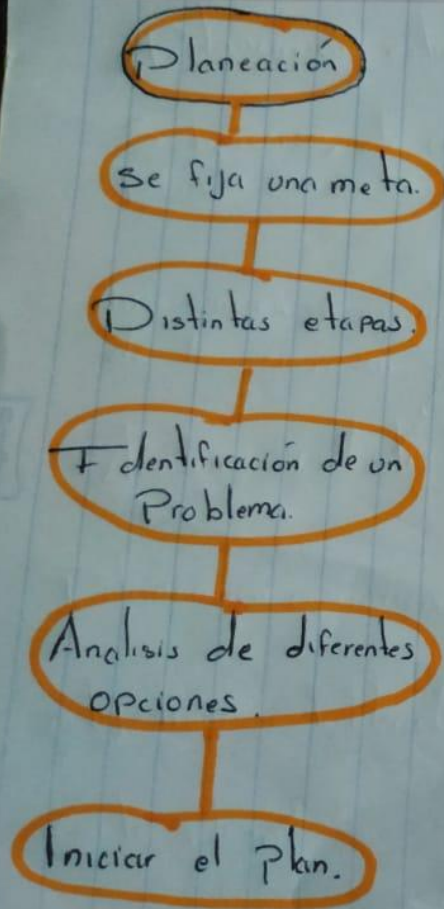 Planeación
Se fija una meta.
Distintas etapas.
Identificación de un
Problema.
Analisis de diferentes
opciones.
Iniciar el Plan.